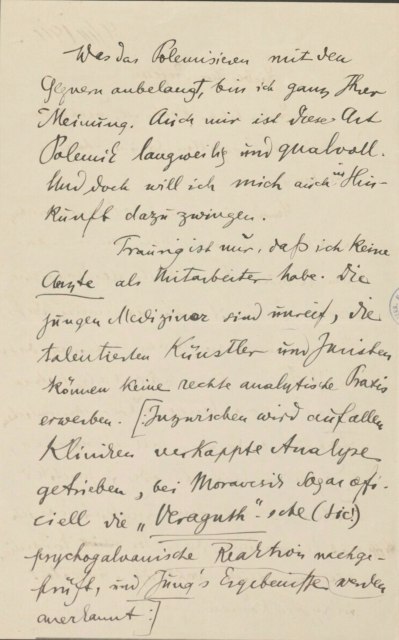 Was das Polemisieren mit den
Gegnern anbelangt, bin ich ganz Ihrer
Meinung. Auch mir ist diese Art
Polemik langweilig und qualvoll.
Und doch will ich mich auch in Hin-
kunft dazu zwingen.
Traurig ist nur, daß ich keine
Ärzte als Mitarbeiter habe. Die
jungen Mediziner sind unreif, die
talentierten Künstler und Juristen
können keine rechte analytische Praxis
erwerben. [: Inzwischen wird auf allen
Kliniken verkappte Analyse
getrieben, bei Moravcsik sogar offi-
ciell die „Veraguth"-sche (sic!)
psychogalvanische Reaktion nachge-
prüft, und Jung's Ergebnisse werden
anerkannt :]